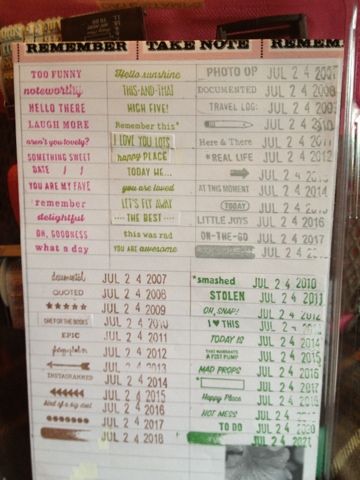 REMEMBER TAKE NOTE REMEM
TOO FUNNY
noteworthy
HELLO THERE
LAUGH MORE
aren't you lovely?
SOMETHING SWEET
DATE / /
YOU ARE MY FAVE
remember
delightful
OH, GOODNESS
what a day
Hello sunshine
THIS-AND-THAT
HIGH FIVE!
Remember this*
I LOVE YOU LOTS
happy PLACE
TODAY WE...
you are loved
LET'S FLY AWAY
THE BEST
this was rad
YOU ARE awesome
PHOTO OP JUL 2 4 2007
DOCUMENTED JUL 2 4 2008
TRAVEL LOG: JUL 2 4 2009
JUL 2 4 2010
Here & There JUL 2 4 2011
*REAL LIFE JUL 2 4 2012
JUL 2 4
AT THIS MOMENT JUL 2 4 2014
TODAY JUL 2 4
LITTLE JOYS JUL 2 4 2016
ON-THE-GO JUL 2 4 2017
JUL 2 4
documented JUL 2 4 2007
QUOTED JUL 2 4 2008
JUL 2 4 2009
ONE FOR THE BOOKS JUL 2 4 2010
EPIC JUL 2 4 2011
JUL 2 4 2012
JUL 2 4 2013
INSTAGRAMMED JUL 2 4 2014
JUL 2 4 2015
kind of a big deal JUL 2 4 2016
JUL 2 4 2017
JUL 2 4 2018
*smashed JUL 2 4 2010
STOLEN JUL 2 4 2011
OH, SNAP! JUL 2 4 2012
I ♥ THIS JUL 2 4
TODAY IS JUL 2 4 2014
THIS WARRANTS A FIST PUMP JUL 2 4 2015
MAD PROPS JUL 2 4 2016
JUL 2 4 2017
Happy Place JUL 2 4
HOT MESS JUL 2 4
TO DO JUL 2 4 2020
JUL 2 4 2021